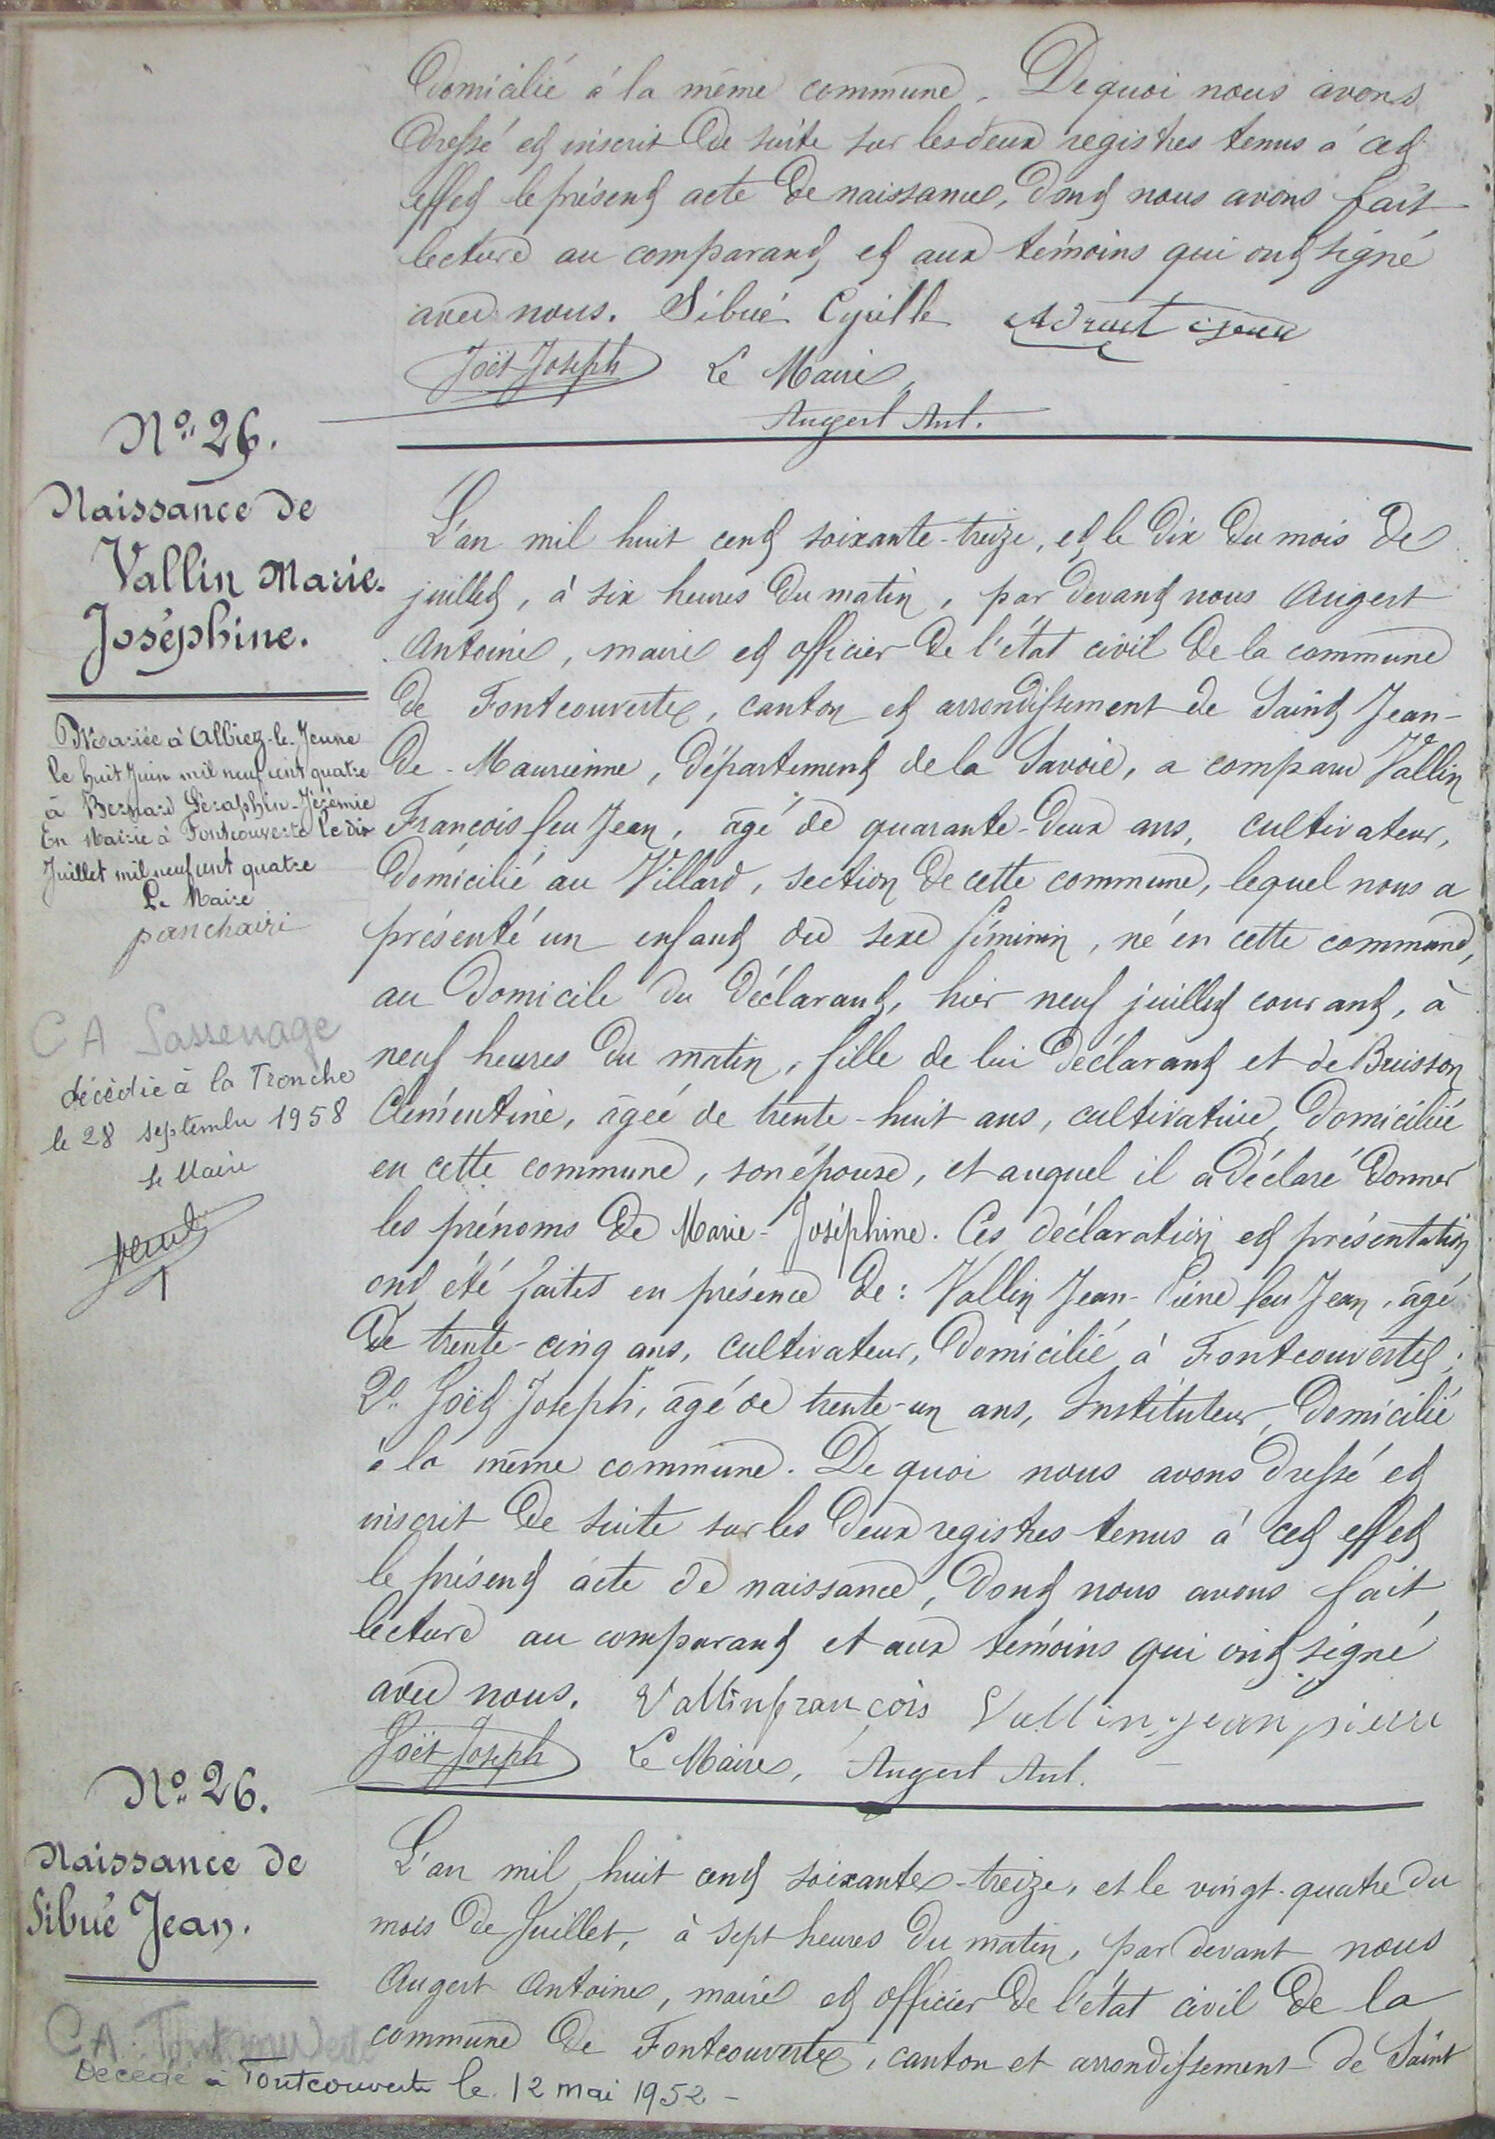 Domicilié à la même commune. De quoi nous avons
dressé et inscrit de suite sur les deux registres tenus à cet
effet le présent acte de naissance, dont nous avons fait
lecture au comparant et aux témoins qui ont signé
avec nous. Sibué Cyrille
Joët Joseph Le Maire,
Augert Ant.
Nº 25.
Naissance de
Vallin Marie-
Joséphine.
Mariée à Albiez-le-Jeune
le huit Juin mil neuf cent quatre
à Bernard Séraphin-Jérémie
En Mairie à Fontcouverte le dix
Juillet mil neuf cent quatre
Le Maire
CA Sassenage
décédée à la Tronche
le 28 septembre 1958
le Maire
L'an mil huit cent soixante-treize, et le dix du mois de
juillet, à six heures du matin, par devant nous Augert
Antoine, maire et officier de l'état civil de la commune
de Fontcouverte, canton et arrondissement de Saint Jean-
de-Maurienne, département de la Savoie, a comparu Vallin
François feu Jean, âgé de quarante-deux ans, cultivateur,
domicilié au Villard, section de cette commune, lequel nous a
présenté un enfant du sexe féminin, né en cette commune,
au domicile du déclarant, hier neuf juillet courant, à
neuf heures du matin, fille de lui déclarant et de Buisson
Clémentine, âgée de trente-huit ans, cultivatrice, domiciliée
en cette commune, son épouse, et auquel il a déclaré donner
les prénoms de Marie-Joséphine. Ces déclaration et présentation
ont été faites en présence de: Vallin Jean-Pierre feu Jean, âgé
de trente-cinq ans, cultivateur, domicilié à Fontcouverte;
2º Joët Joseph, âgé de trente-un ans, Instituteur, domicilié
à la même commune. De quoi nous avons dressé et
inscrit de suite sur les deux registres tenus à cet effet
le présent acte de naissance, dont nous avons fait
lecture au comparant et aux témoins qui ont signé
avec nous. Vallin françois Vallin jean pierre
Joët Joseph Le Maire, Augert Ant.
Nº 26.
Naissance de
Sibué Jean.
CA Fontcouverte
Décédé à Fontcouverte le 12 mai 1952 -
L'an mil huit cent soixante-treize, et le vingt-quatre du
mois de Juillet, à sept heures du matin, par devant nous
Augert Antoine, maire et officier de l'état civil de la
commune de Fontcouverte, canton et arrondissement de Saint